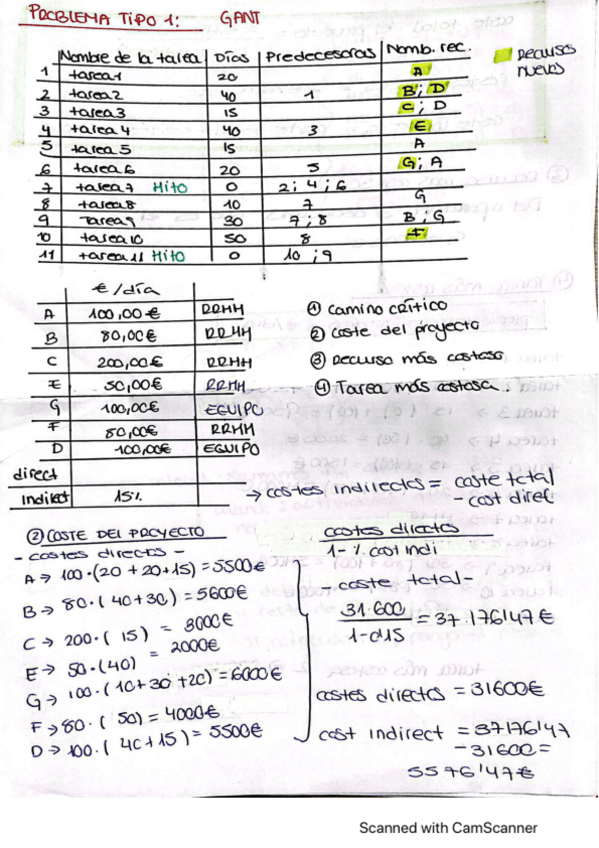 PROBLEMA TIPO 1: GANT
Nombre de la tarea Días Predecesoras Nomb. rec.
Recursos nuevos
1 tarea1 20 A
2 tarea2 40 1 B; D
3 tarea3 15 C; D
4 tarea4 40 3 E
5 tarea5 15 A
6 tarea6 20 5 G; A
7 tarea7 Hito 0 2; 4; 6
8 tarea8 10 7 G
9 Tarea9 30 7; 8 B; G
10 tarea10 50 8 F
11 tarea11 Hito 0 10; 9
€/día
A 100,00€ RRHH
B 80,00€ RRHH
C 200,00€ RRHH
E 50,00€ RRHH
G 100,00€ EQUIPO
F 80,00€ RRHH
D 100,00€ EQUIPO
direct
Indirect 15%
① Camino crítico
② Coste del proyecto
③ Recurso más costoso
④ Tarea más costosa.
→ costes indirectos = coste total - cost direc
② COSTE DEL PROYECTO
- costes directos -
A → 100·(20+20+15) = 5500€
B → 80·(40+30) = 5600€
C → 200·(15) = 3000€
E → 50·(40) = 2000€
G → 100·(10+30+20) = 6000€
F → 80·(50) = 4000€
D → 100·(40+15) = 5500€
costes directos
1-% cost indi
- coste total -
31.600
1-0'15
= 37.176'47€
costes directos = 31600€
cost indirect = 37176'47
- 31600 =
5576'47€
Scanned with CamScanner